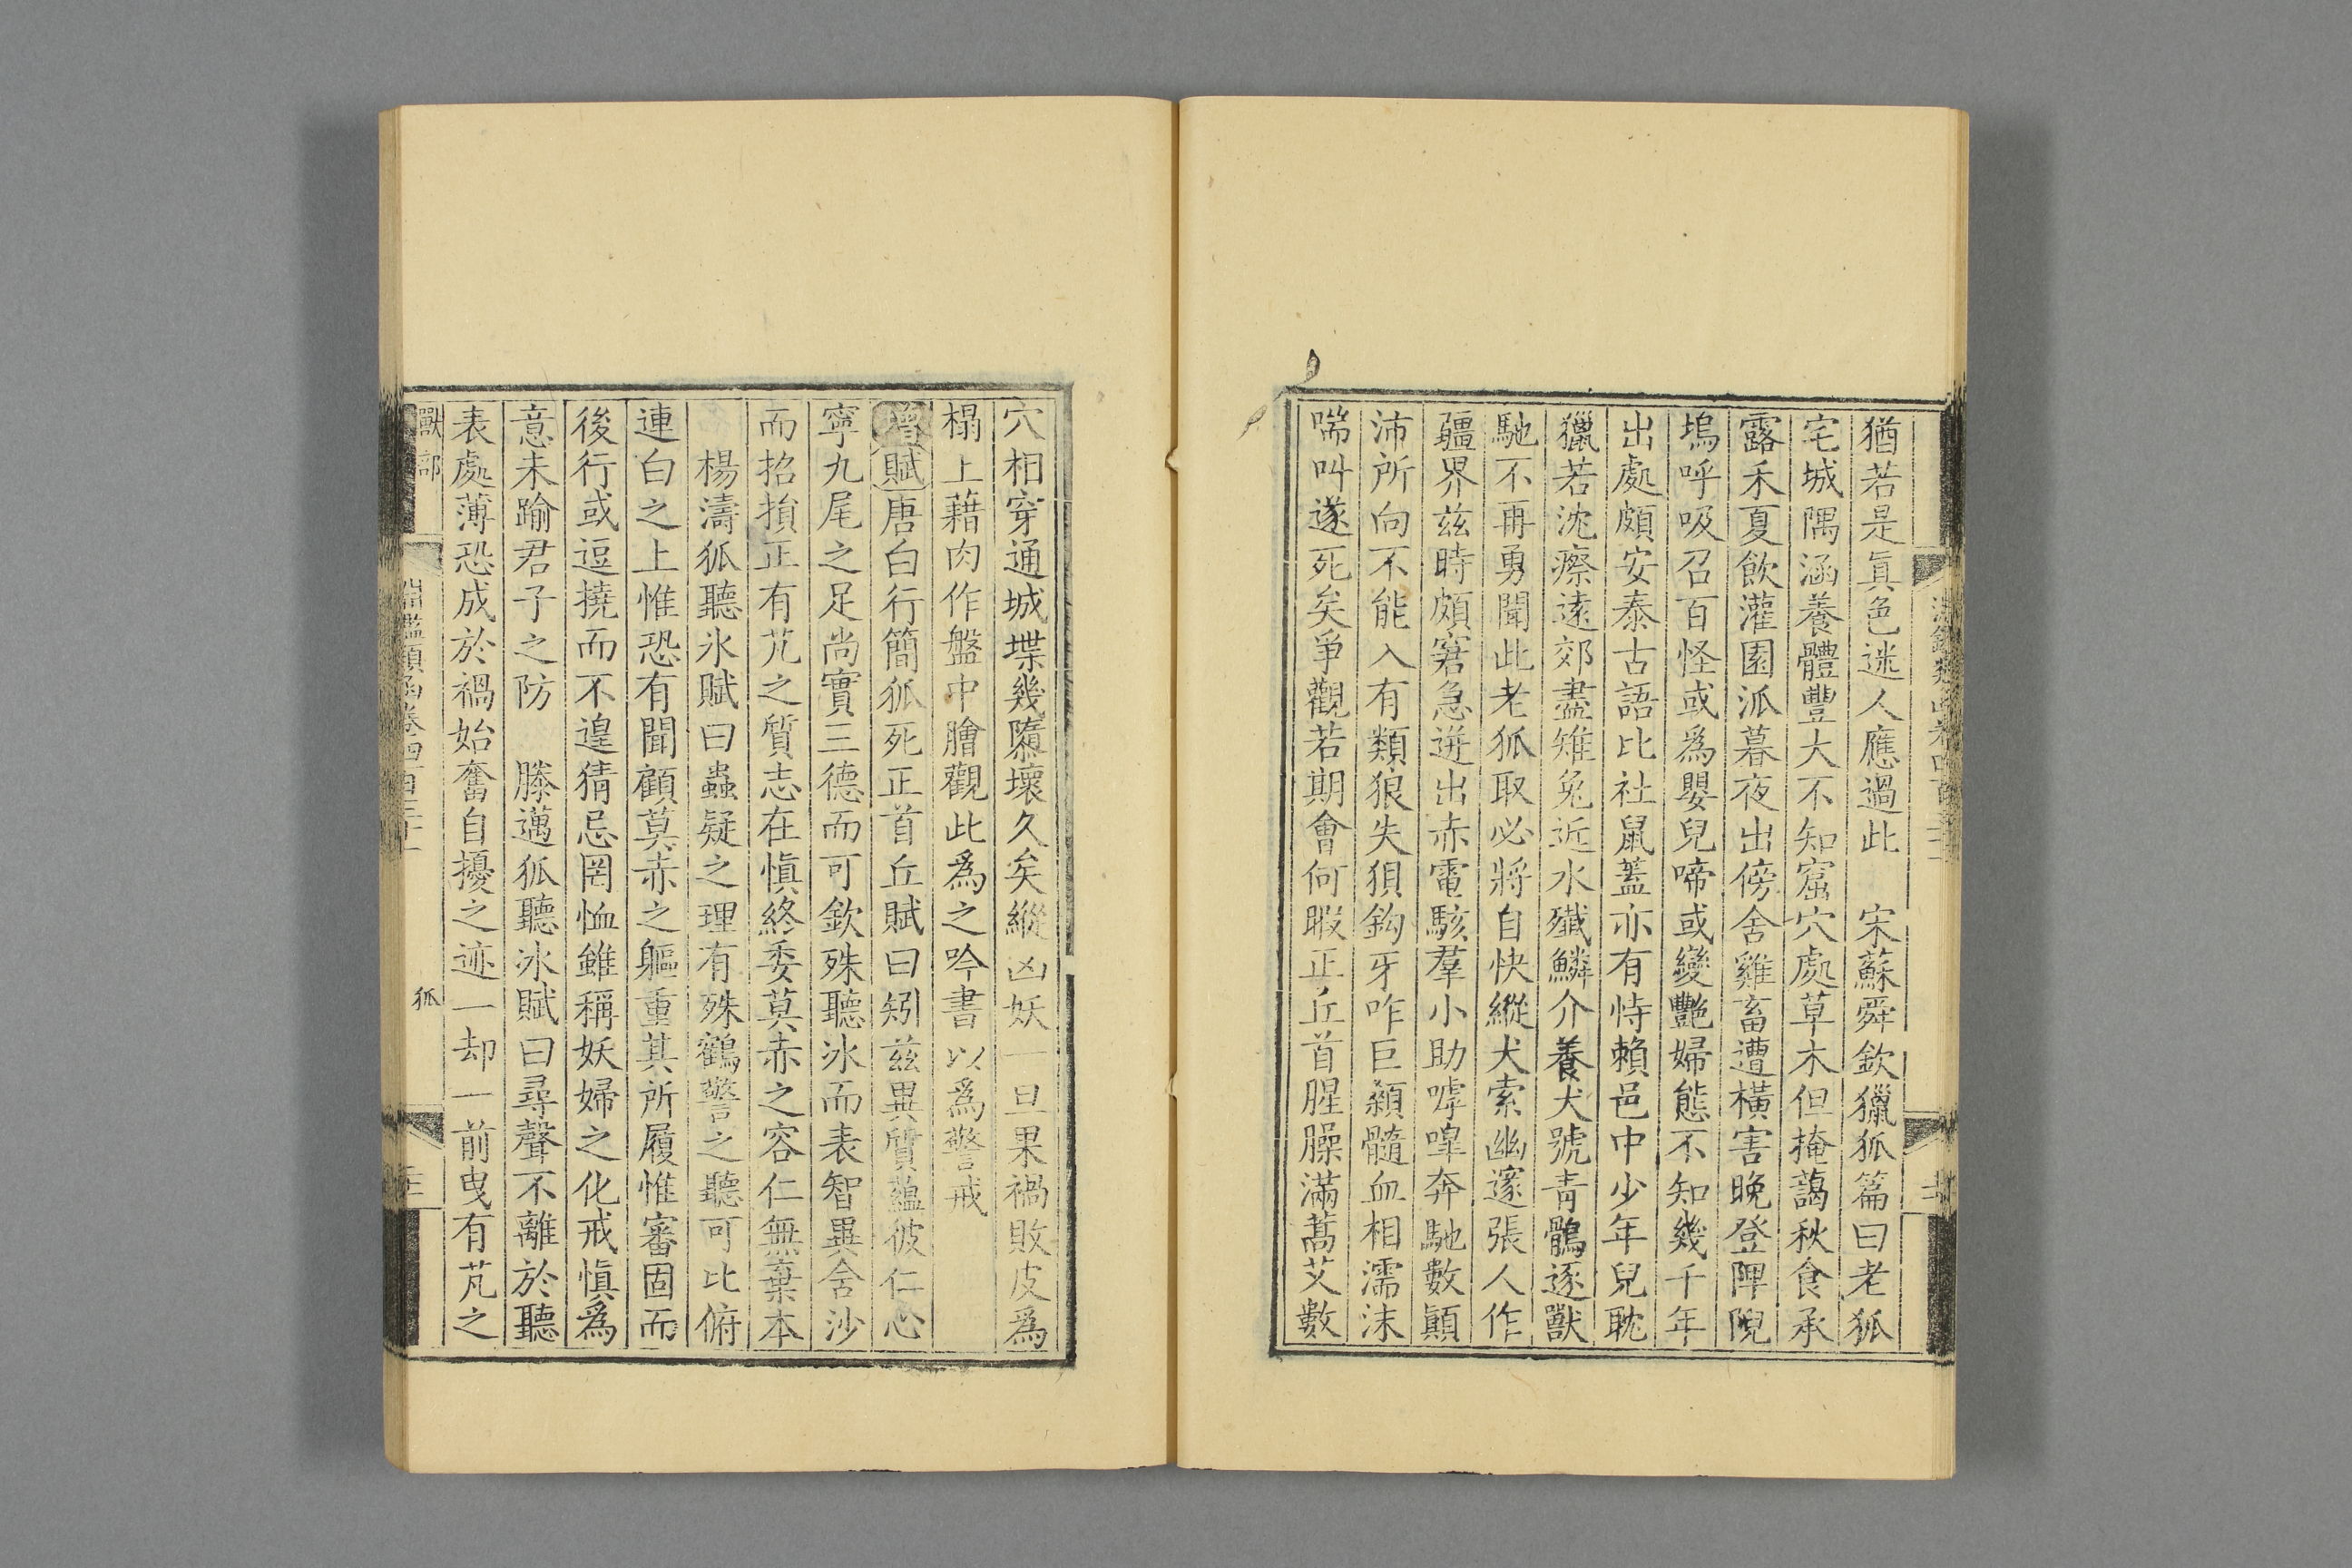 猶若是眞色迷人應過此　宋蘇舜欽獵狐篇曰老狐
宅城隅涵養體豐大不知窟穴處草木但掩藹秋食承
露禾夏飲灌園派暮夜出傍舍雞畜遭橫害晚登陴睨
塢呼吸召百怪或爲嬰兒啼或變艷婦態不知幾千年
出處頗安泰古語比社鼠蓋亦有恃賴邑中少年兒耽
獵若沈瘵遠郊盡雉兔近水殲鱗介養犬號青鶻逐獸
馳不再勇聞此老狐取必將自快縱犬索幽邃張人作
疆界茲時頗窘急迸出赤電駭羣小助嘑嘷奔馳數顚
沛所向不能入有類狼失狽鈎牙咋巨顙髓血相濡沫
喘叫遂死矣爭觀若期會何暇正丘首腥臊滿蒿艾數
穴相穿通城堞幾隳壞久矣縱凶妖一旦果禍敗皮爲
榻上藉肉作盤中膾觀此爲之吟書以爲警戒
增賦唐白行簡狐死正首丘賦曰矧茲異質蘊彼仁心
寧九尾之足尚實三德而可欽殊聽冰而表智異含沙
而招損正有芃之質志在愼終委莫赤之容仁無棄本
楊濤狐聽氷賦曰蟲疑之理有殊鶴警之聽可比俯
連白之上惟恐有聞顧莫赤之軀重其所履惟審固而
後行或逗撓而不遑猜忌罔恤雖稱妖婦之化戒愼爲
意未踰君子之防　滕邁狐聽冰賦曰尋聲不離於聽
表處薄恐成於禍始奮自擾之迹一却一前曳有芃之
獸部　淵鑑類函卷四百三十一　狐